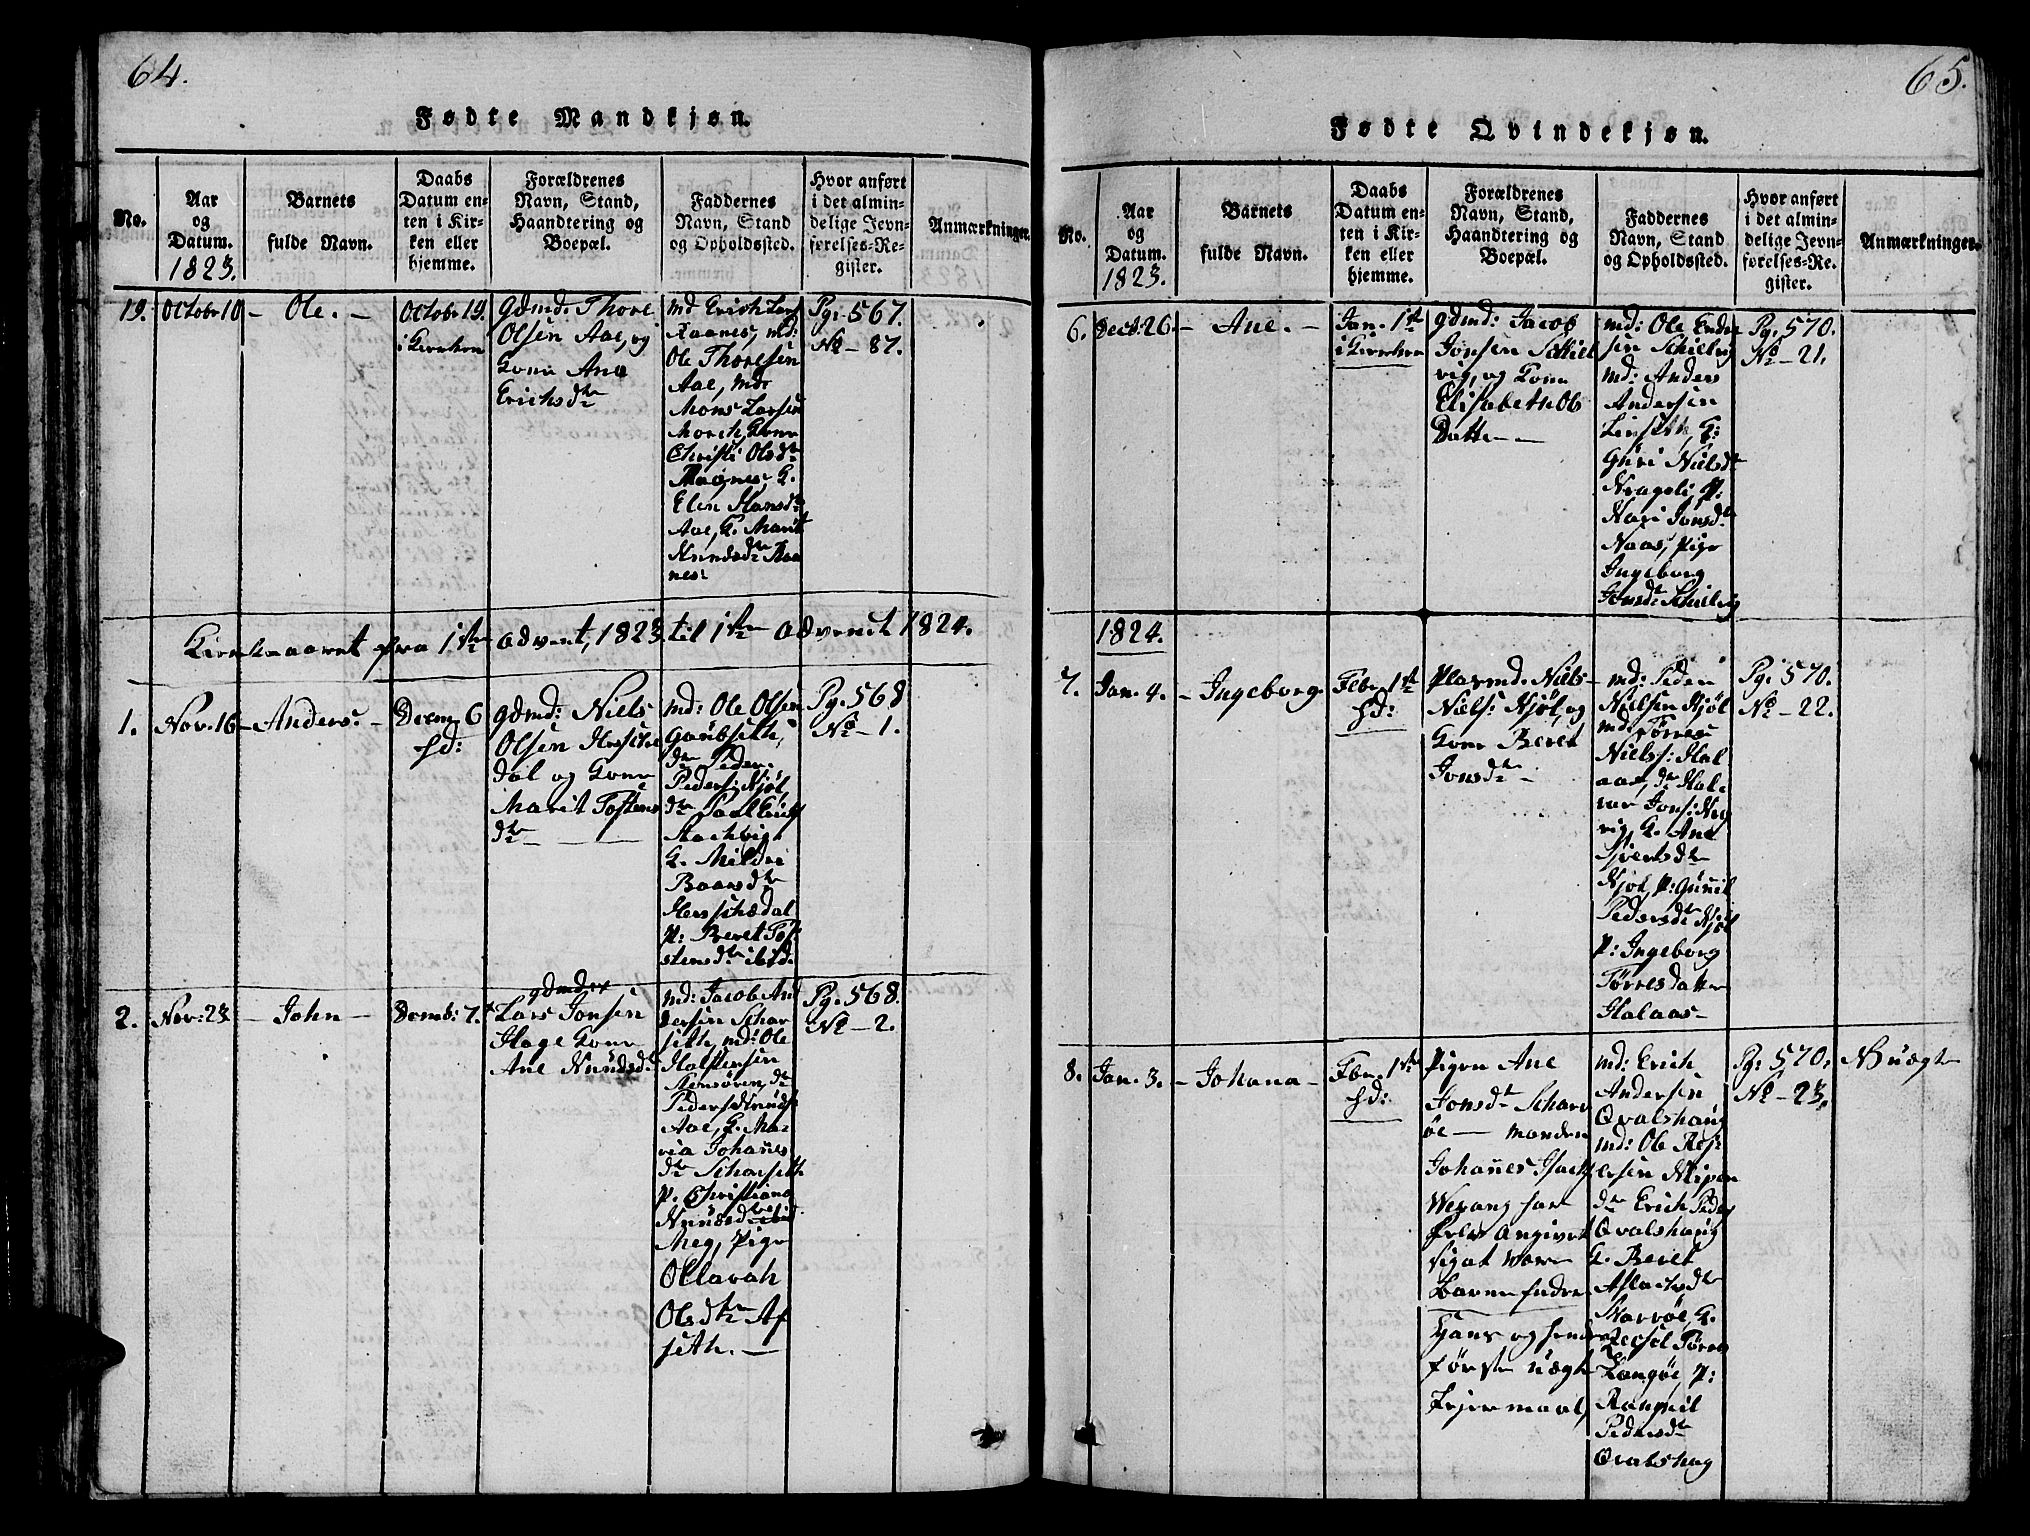 64.
Fødte Mandkjøn.
No.
Aar
og
Datum.
1823.
Barnets
fulde Navn.
Daabs
Datum en-
ten i Kir-
ken eller
hjemme.
Forældrenes
Navn, Stand,
Haandtering og
Boepæl.
Faddernes
Navn, Stand
og Opholdssted.
Hvor anført
i det almin-
delige Jevn-
førelses-Re-
gister.
Anmærkninger.
19.
Octobr 10
- Ole. -
Octobr 19.
i Kirken
Gdmd: Thore
Olsen Aae, og
Kone Ane
Erichsdtr
md Erich Lars
Raanes, md:
Ole Thoresen
Aae, md:
Mons Larsen
Morch, Kone
Christi Olsdtr
Raanes, G.
Elen Hansdtr
Aae, G. Marit
Knudsdtr Raa
nes:
Pg: 567.
No - 87.
Kirkeaaret fra 1ste Advent, 1823 til 1ste Advent 1824.
1.
Nov. 16
- Anders. -
Decem. 6
hd:
Gdmd: Niels
Olsen
dal og Kone
Marit Tostens
dtr
md: Ole Olsen
Gaubseth,
dtr Peder
Peders: Kjøl,
G. Mildri
Baarsdtr
P: Beret To
stensdtr ibid.
Pg. 568
No - 1.
2.
Nov: 23
- John -
Decmb: 7.
gdmd
Lars Jonsen
Hage Kone
Ane Knudsd:
md: Jacob An
dersen Schar
seth, md: Ole
Halstensen
Aae, G. Ma-
ria Johannes
dtr Scharseth
P. Christiana
Knudsdtr ibid
Meg, Pige
Ollavah
Olsdtr Af
seth. -
Pg. 568.
No - 2.
65.
Fødte Qvindekjøn.
No.
Aar
og
Datum.
1823.
Barnets
fulde Navn.
Daabs
Datum en-
ten i Kir-
ken eller
hjemme.
Forældrenes
Navn, Stand,
Haandtering og
Boepæl.
Faddernes
Navn, Stand
og Opholdssted.
Hvor anført
i det almin-
delige Jevn-
førelses-Re-
gister.
Anmærkninger.
6.
Decb: 26.
- Ane. -
Jan. 1ste
i Kirken
Gdmd: Jacob
Jonsen Schiel
vig, og Kone
Elisabeth Ols
Datter -
md: Ole Endre
sen Schielvig
md: Anders
Andersen
Linseth, G:
Guri Nielsdtr
P:
Kari Jonsdtr
Naas, Pige
Ingeborg
Jonsdtr Schielvig
Pg. 570.
No - 21.
1824.
7.
Jan. 4.
- Ingeborg.
Febr. 1ste
hd:
Plasmd. Niels
Niels: Kjøl, og
Kone Beret
Jonsdtr -
md: Peder
Nielsen Kjøl
md: Tørres
Niels: Hal
aas, dtr Hal
var Jons:
vig, G. Ane
Siversdtr
Kjøl, P: Gunil
Pedersdtr Kjøl
P: Ingeborg
Tørresdatter
Halaas -
Pg. 570.
No - 22.
8.
Jan. 3.
- Johana -
Febr. 1ste
hd:
Pigen Ane
Jonsdtr Schar
øe - manden
Johannes Isach
Wevang
angivet
sigat være
Barnefader
Hans og hendes
første uægte
Leiermaal,
md: Erich
Andersen
Qvalshaug
md: Ole
dtr Erich Peder
Qvalshaug
G. Beret
Aslachsdtr
G.
Zeesel Tørres
Langøe, P:
Rangnil
Pedersdtr
Qvalshaug
Pg: 570.
No - 23.
NB uægt